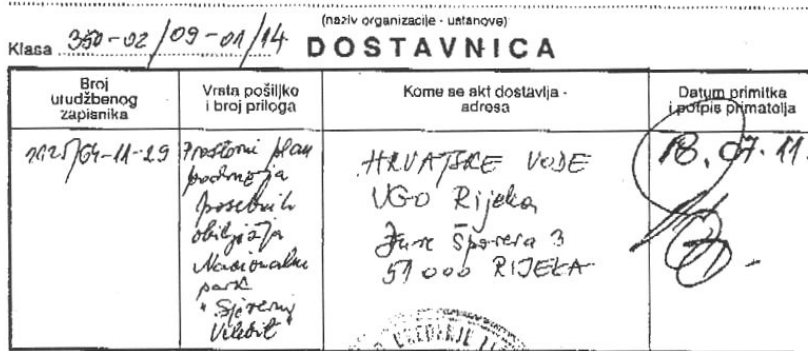 (naziv organizacije - ustanove)
Klasa 350-02/09-01/14 DOSTAVNICA
Broj
urudžbenog
zapisnika
Vrsta pošiljke
i broj priloga
Kome se akt dostavlja -
adresa
Datum primitka
i potpis primatelja
2125/64-11-29
Prostorni plan
područja
posebnih
obilježja
Nacionalni
park
"Sjeverni
Velebit"
HRVATSKE VODE
VGO Rijeka
Đure Šporera 3
51000 RIJEKA
18.07.11.